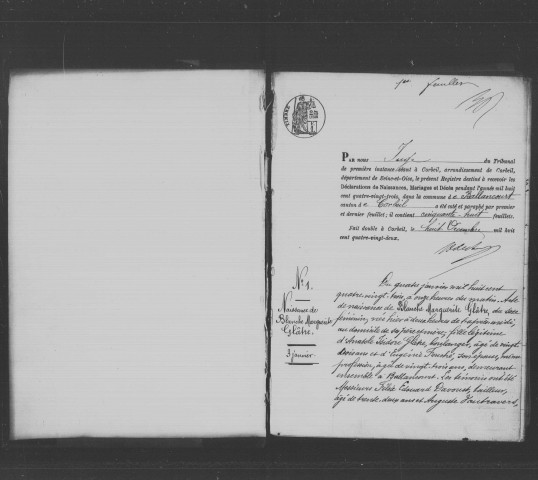 1er feuillet
TIMBRE
PAR NOUS Juge du Tribunal
de première instance séant à Corbeil, arrondissement de Corbeil,
département de Seine-et-Oise, le présent Registre destiné à recevoir les
Déclarations de Naissances, Mariages et Décès pendant l'année mil huit
cent quatre-vingt-trois, dans la commune de Ballancourt
canton de Corbeil a été coté et paraphé par premier
et dernier feuillet; il contient cinquante-huit feuillets.
Fait double à Corbeil, le huit Décembre mil huit
cent quatre-vingt-deux.
N° 1.
Naissance de
Blanche Marguerite
Glâtre.
3 janvier
Du quatre janvier mil huit cent
quatre-vingt-trois, à onze heures du matin. Acte
de naissance de Blanche Marguerite Glâtre, du sexe
féminin, née hier à deux heures de l'après-midi,
au domicile de ses père et mère, fille légitime
d'Anatole Isidore Glâtre, boulanger, âgé de vingt-
ans et d'Eugénie son épouse, sans
profession, âgée de vingt-trois ans, demeurant
ensemble à Ballancourt. Les témoins ont été
Messieurs Félix Edouard Davout, tailleur,
âgé de trente-deux ans et Auguste